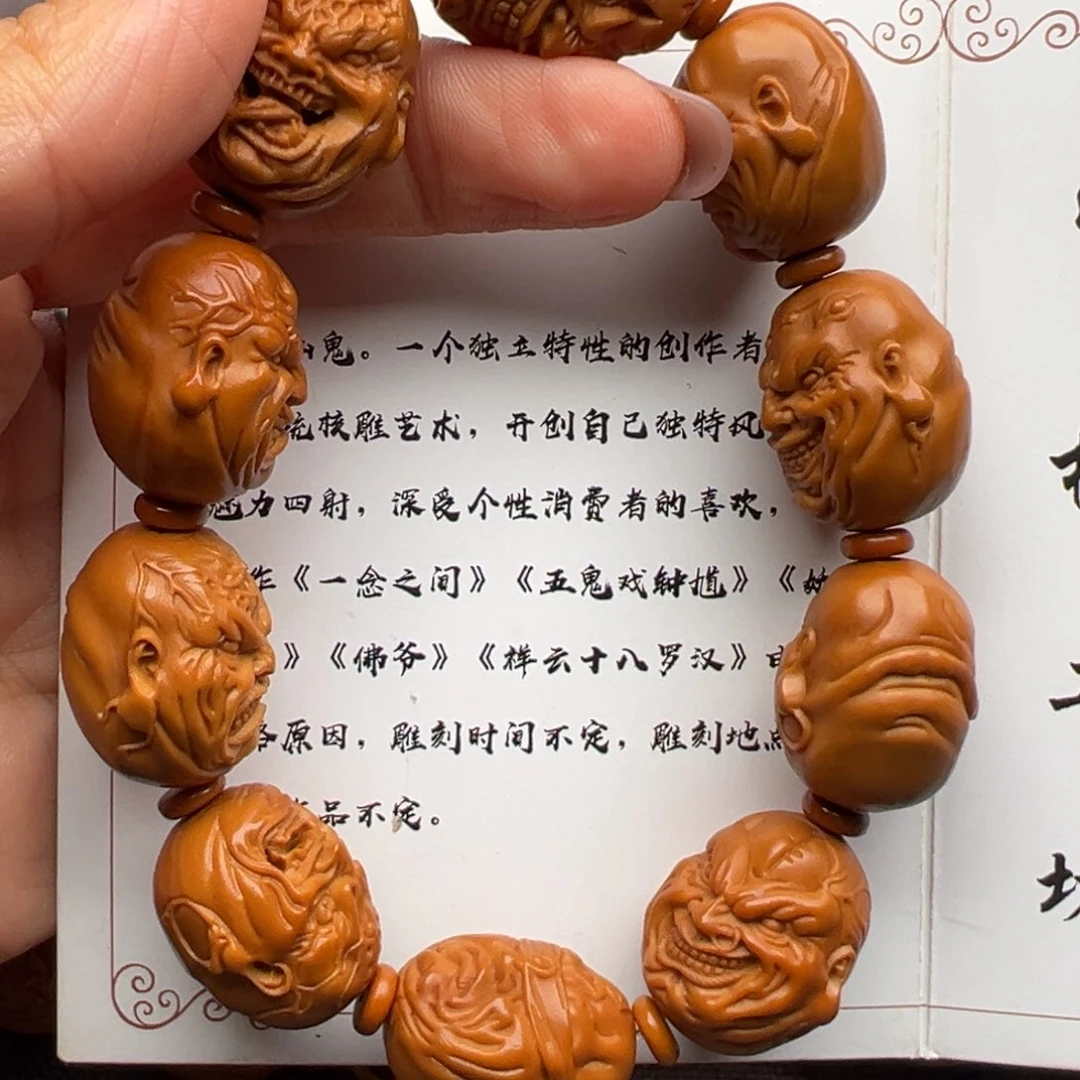 鬼。一个独立特性的创作者
统核雕艺术，开创自己独特风
魅力四射，深受个性消费者的喜欢，
作《一念之间》《五鬼戏钟馗》《
》《佛爷》《祥云十八罗汉》由
原因，雕刻时间不定，雕刻地点
品不定。